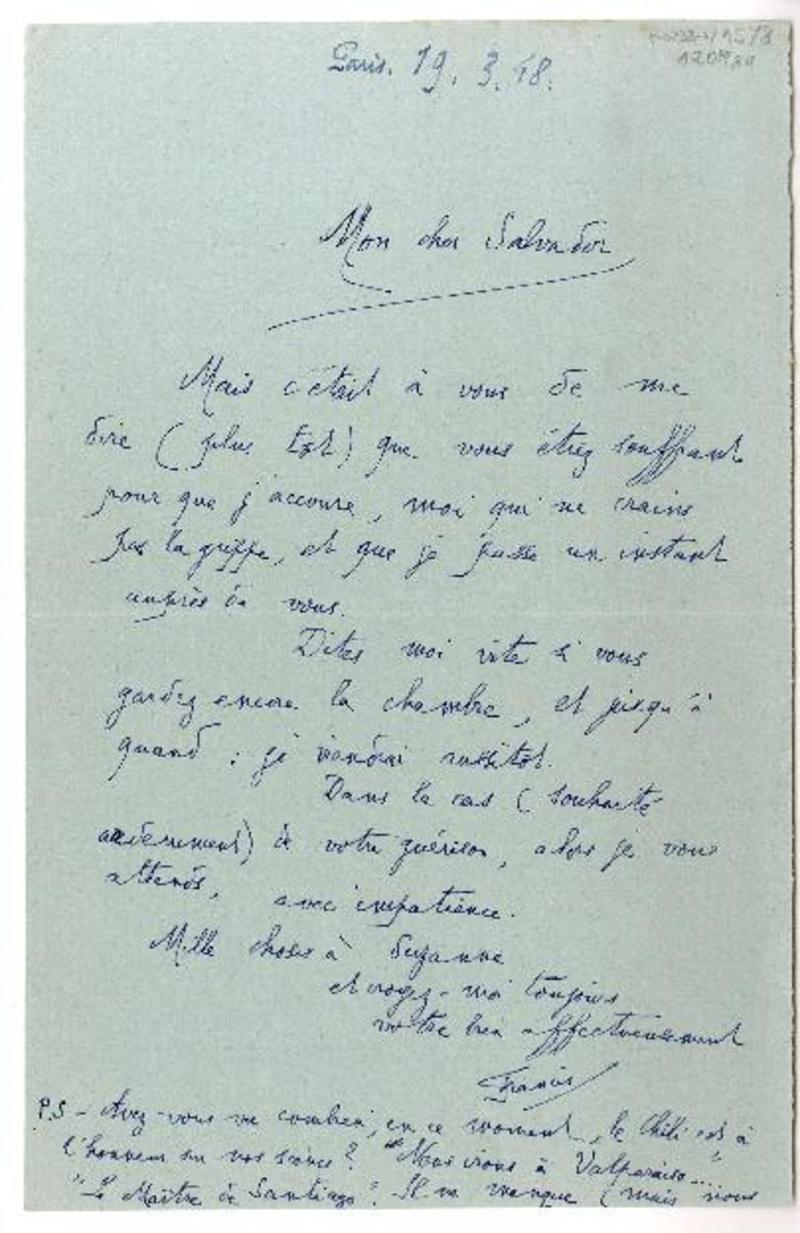 Paris. 19. 3. 48.
Mon cher Salvador
Mais c'était à vous de me
dire (plus tôt) que vous étiez souffrant
pour que j'accoure, moi qui ne crains
pas la grippe, et que je passe un instant
auprès de vous.
Dites moi vite si vous
gardez encore la chambre, et jusqu'à
quand : je viendrai aussitôt.
Dans le cas (souhaité
ardemment) de votre guérison, alors je vous
attends, avec impatience.
Mille choses à Suzanne
et croyez-moi toujours
votre bien affectueusement
Francis
P.S - Avez-vous vu combien, en ce moment, le Chili est à
l'honneur sur nos ? "Nous irons à Valparaiso..."
"Le Maître de Santiago". Il ne manque (mais nous